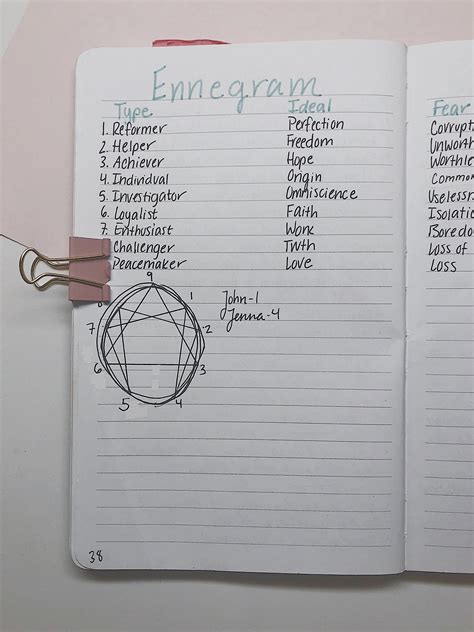 Ennegram
Type Ideal
1. Reformer Perfection
2. Helper Freedom
3. Achiever Hope
4. Individual Origin
5. Investigator Omniscience
6. Loyalist Faith
7. Enthusiast Work
Challenger Truth
Peacemaker Love
9
1
2
3
4
5
6
7
John-1
Jenna-4
38
Fear
Corrupt
Unworth
Worthle
Common
Uselessn
Isolatio
Boredo
Loss of
Loss